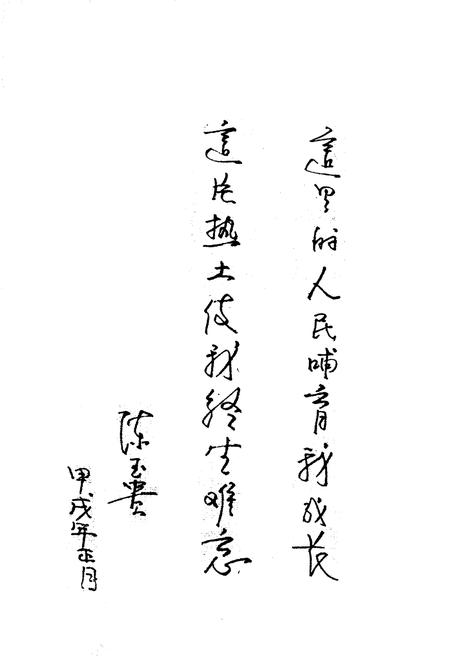 這里的人民哺育我成长
這片热土使我终生难忘
陈玉贵
甲戌年正月